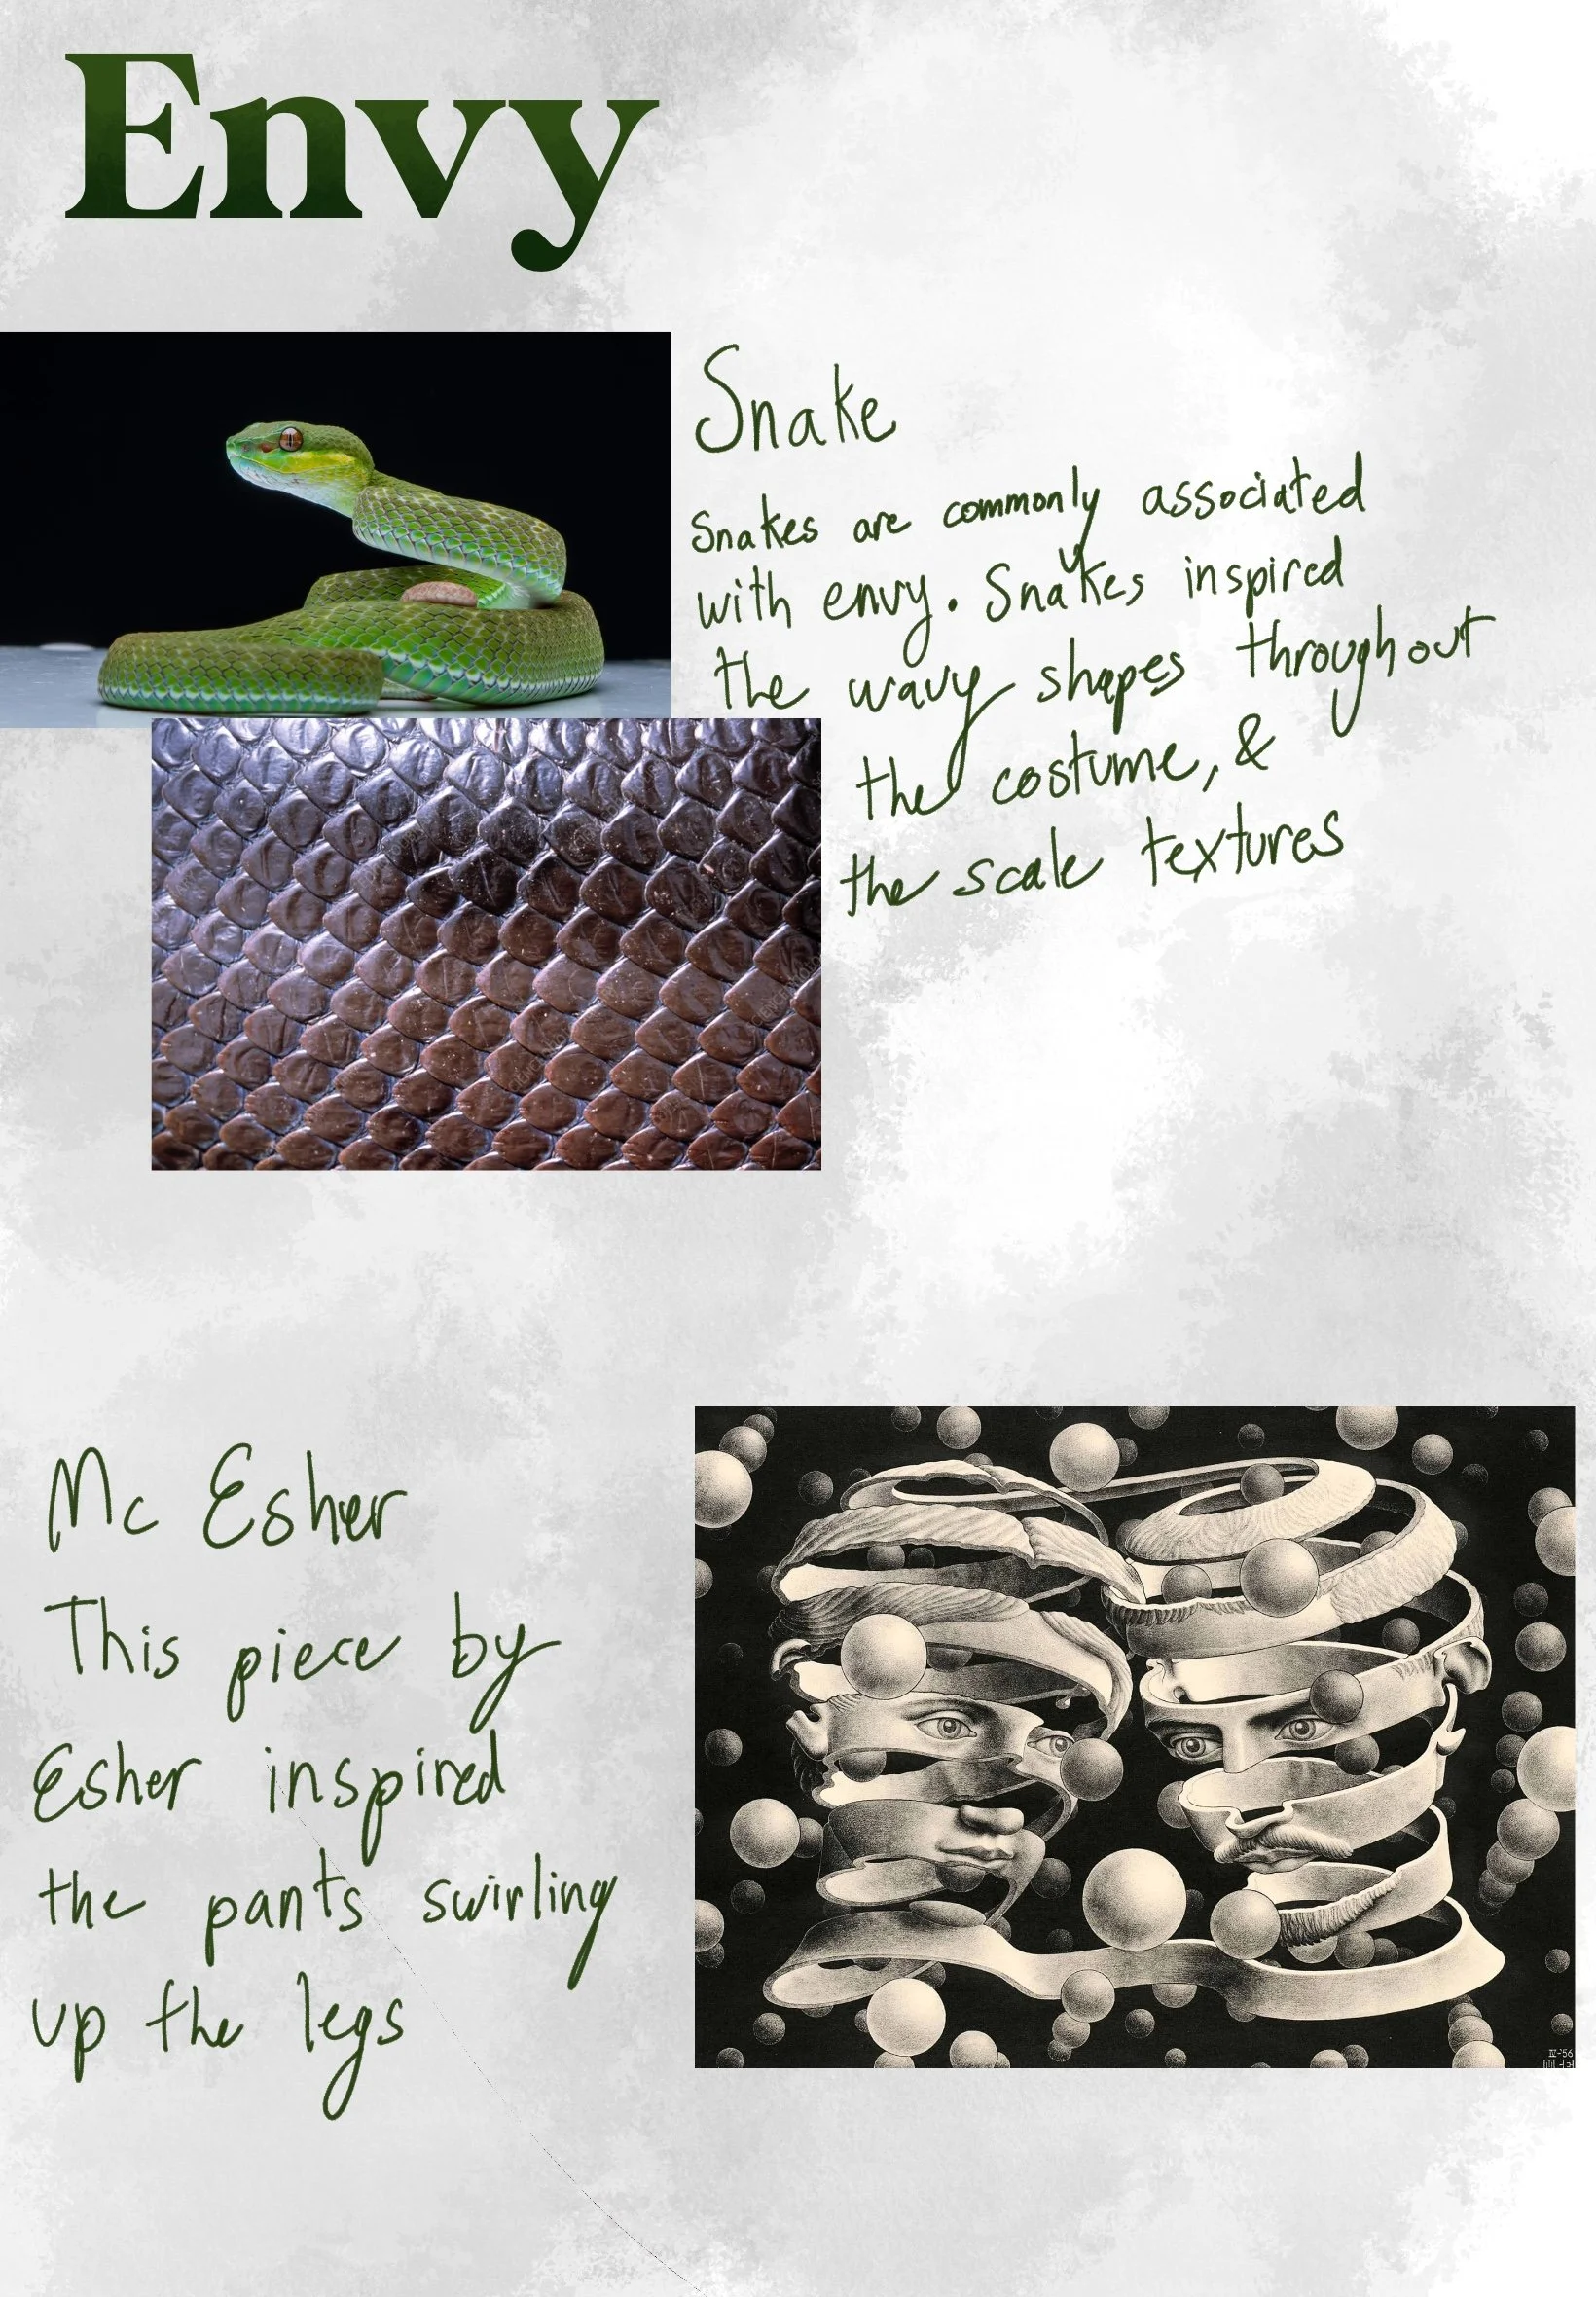 Envy
Snake
Snakes are commonly associated
with envy. Snakes inspired
the wavy shapes throughout
the costume, &
the scale textures
Mc Esher
This piece by
Esher inspired
the pants swirling
up the legs
IV-'56
MCE